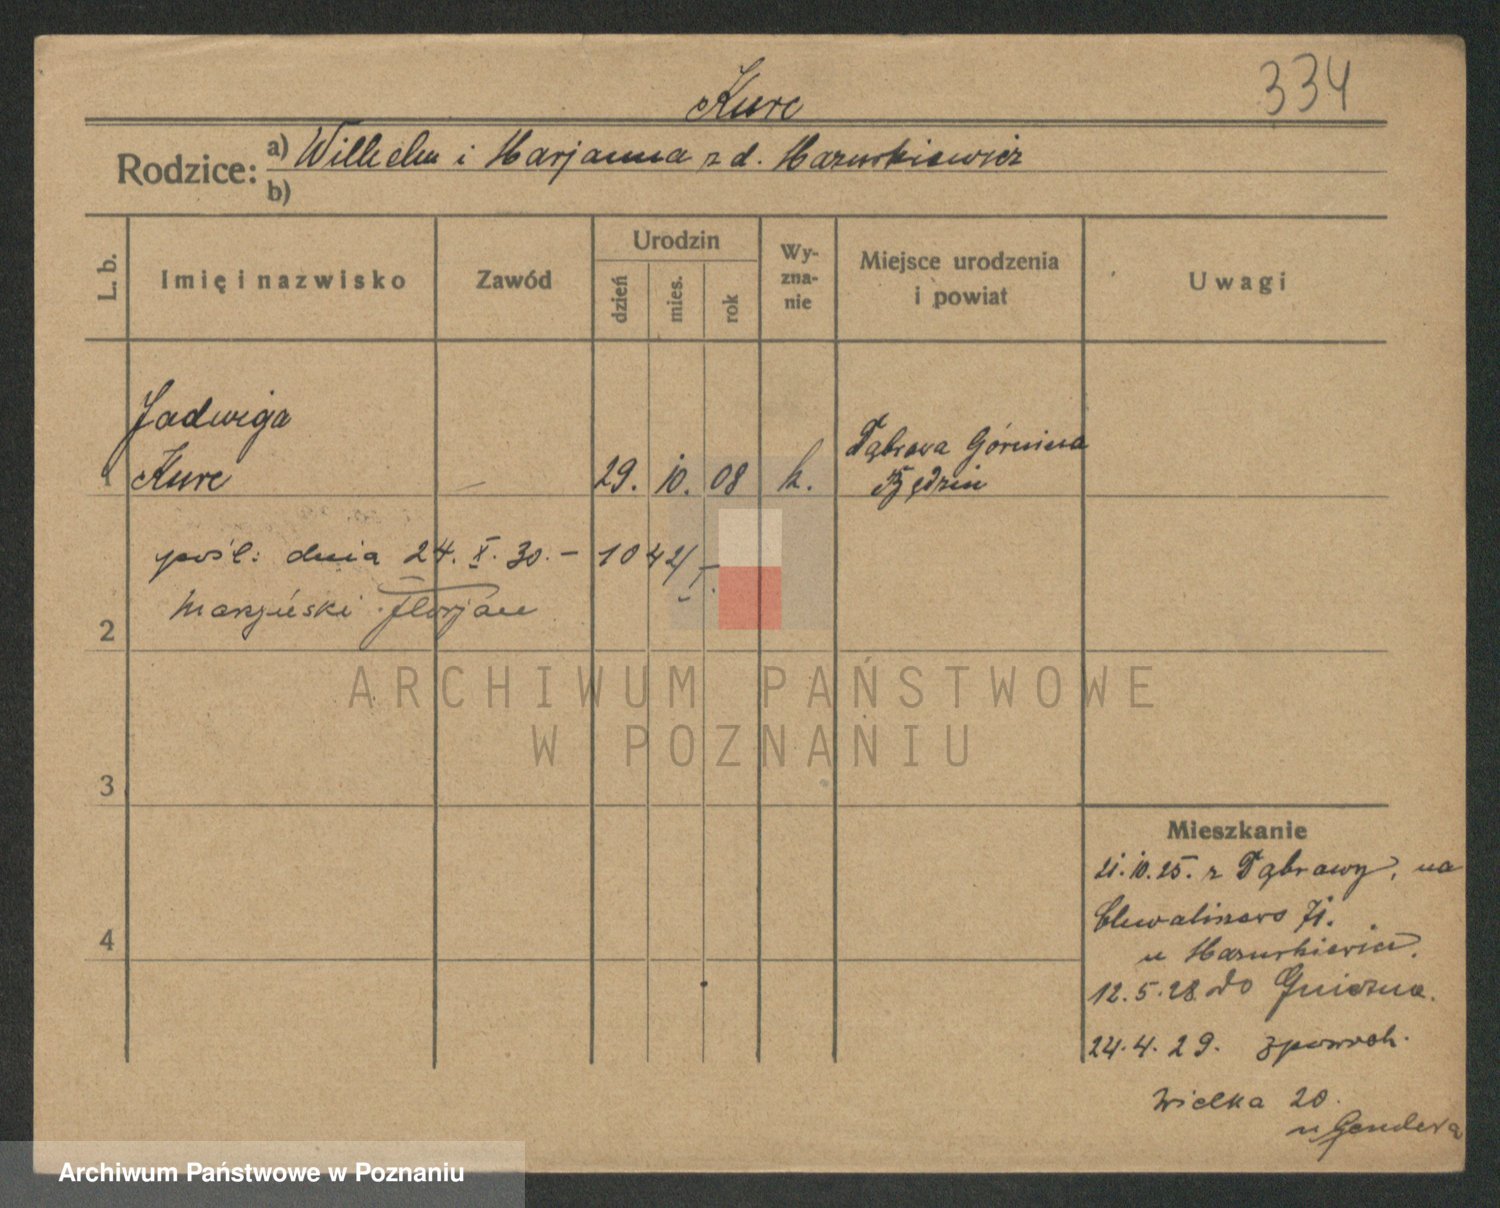 Kurc
334
Rodzice: a) Wilhelm i Marjanna z d. Mazurkiewicz
b)
L. b.
Imię i nazwisko
Zawód
Urodzin
dzień
mies.
rok
Wy-
zna-
nie
Miejsce urodzenia
i powiat
Uwagi
Jadwiga
1 Kurc 29. 10. 08 k.
Dąbrowa Górnicza
Będzin
pośl: dnia 24. X. 30. – 1042/I.
2 Florjan
3
4
ARCHIWUM PAŃSTWOWE
W POZNANIU
Mieszkanie
21.10.25. z Dąbrowy, na
Chwaliszewo 71.
u Mazurkiewicz.
12.5.28 do Gniezna.
24.4.29. zpowroh.
Wielka 20.
u Gendera
Archiwum Państwowe w Poznaniu